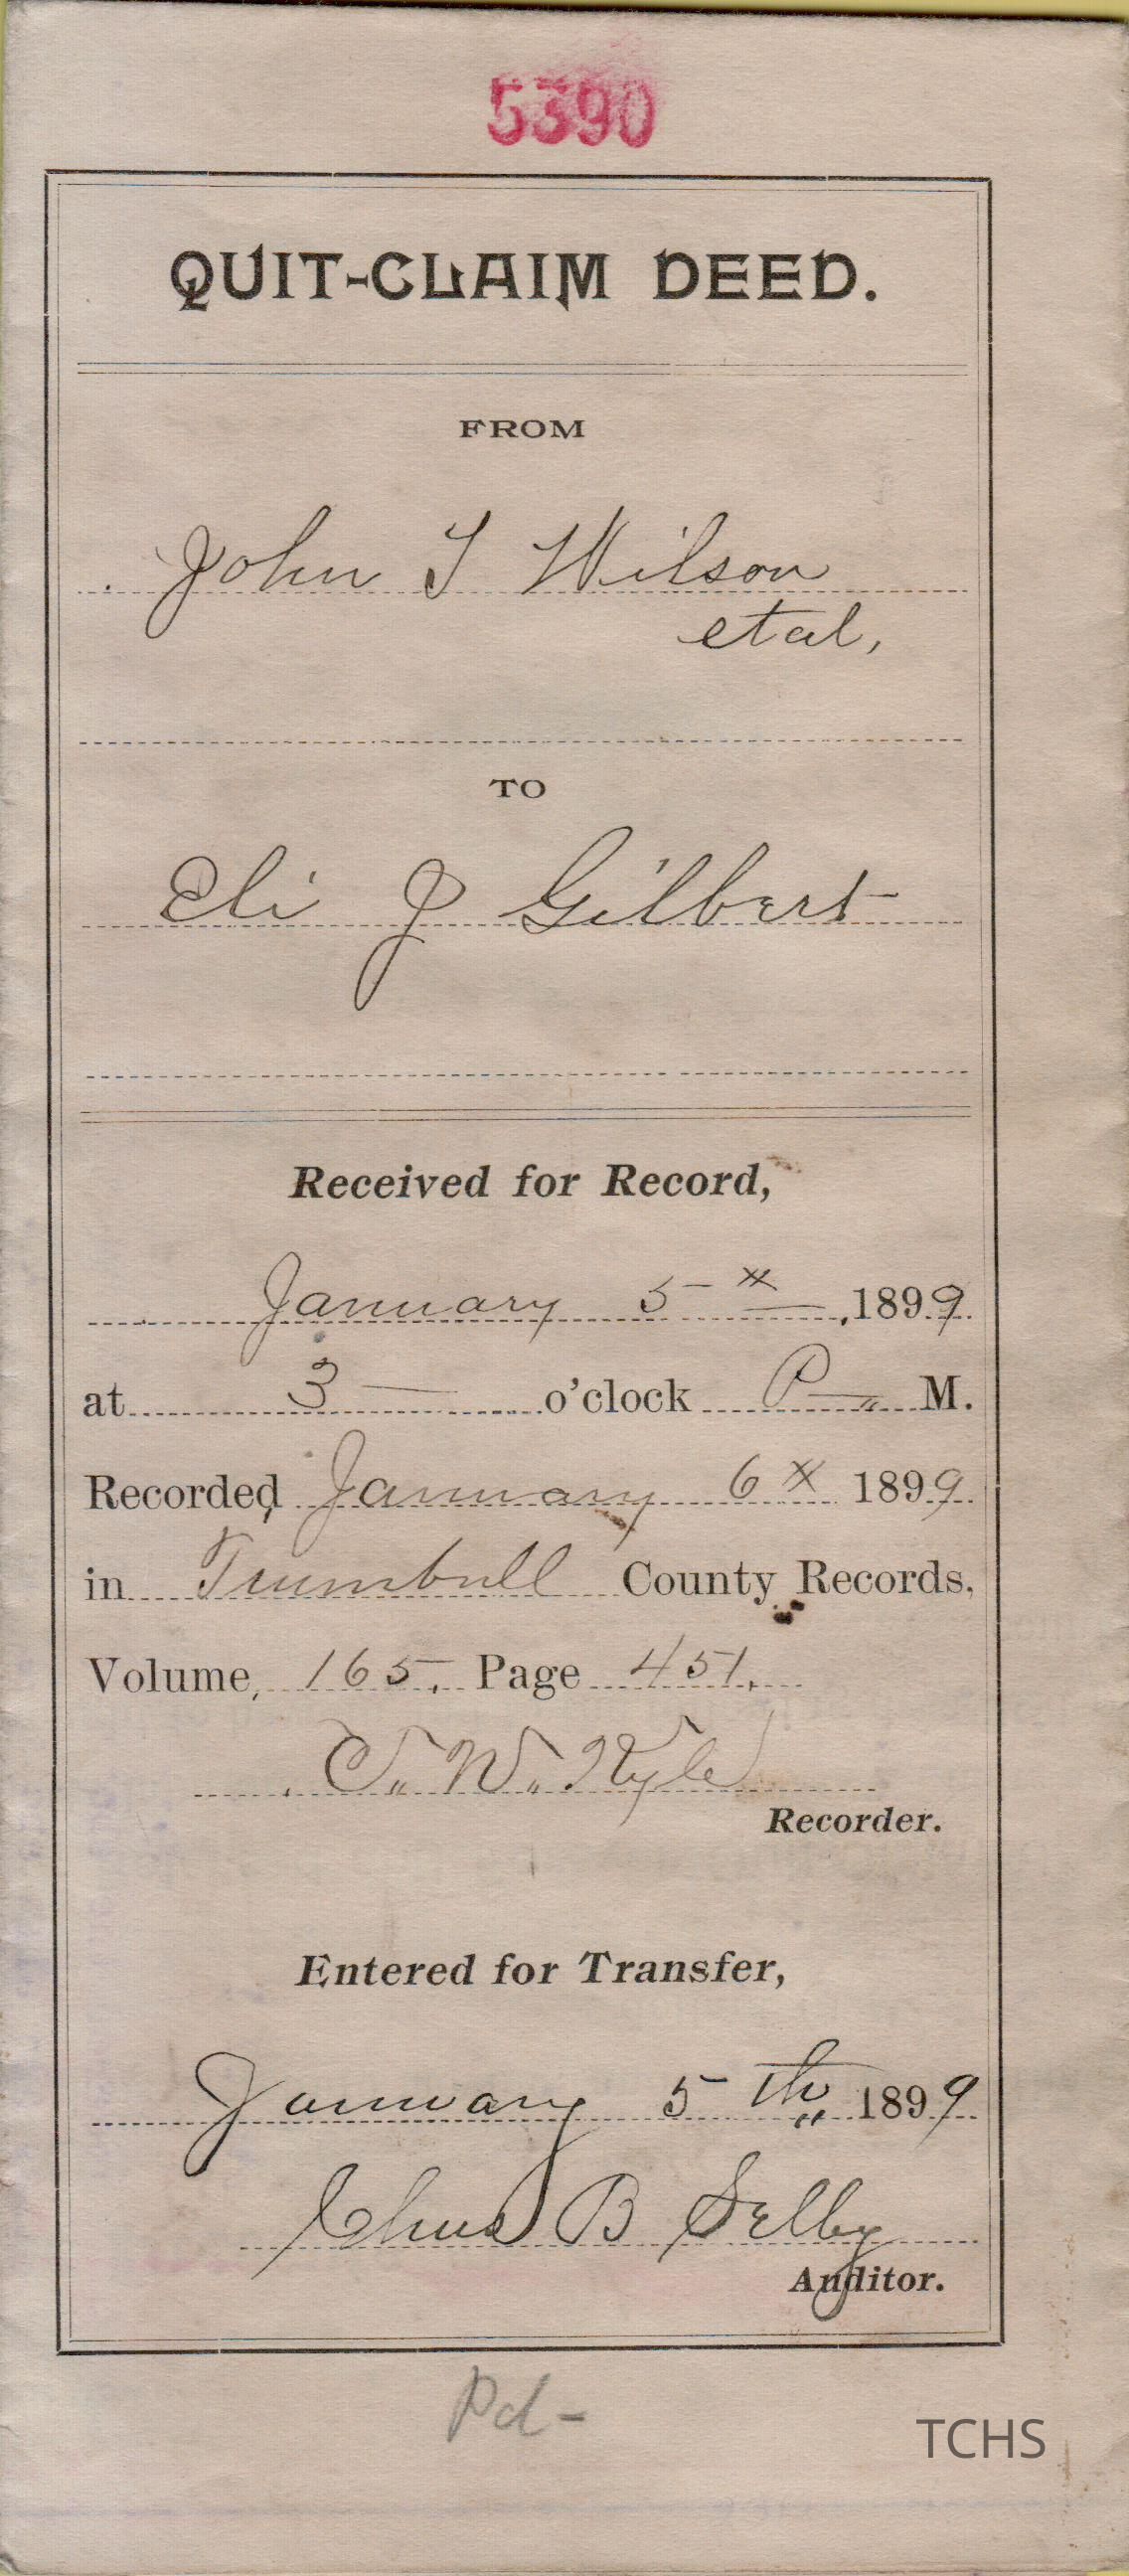 5390
QUIT-CLAIM DEED.
FROM
John T Wilson
et al,
TO
Eli J Gilbert
Received for Record,
January 5 , 1899
at 3 o'clock P M.
Recorded, January 6 1899
in Trumbull County Records,
Volume, 165, Page 451,
W. Kyle
Recorder.
Entered for Transfer,
January 5th 1899
Chas B Selby
Auditor.
Pd-
TCHS